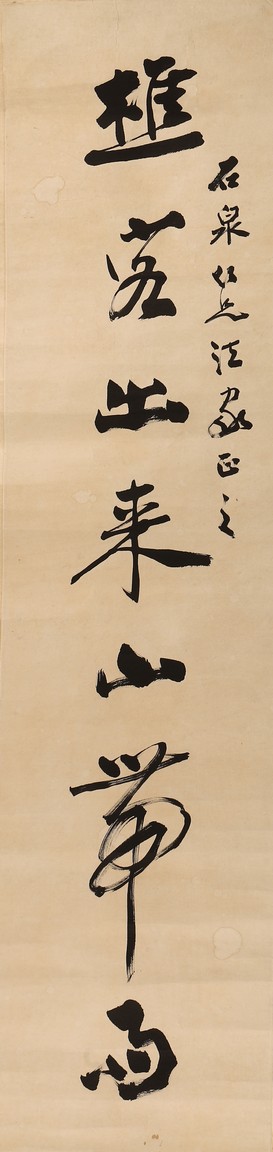 石泉仁兄法家正之
樵客出来山帶雨